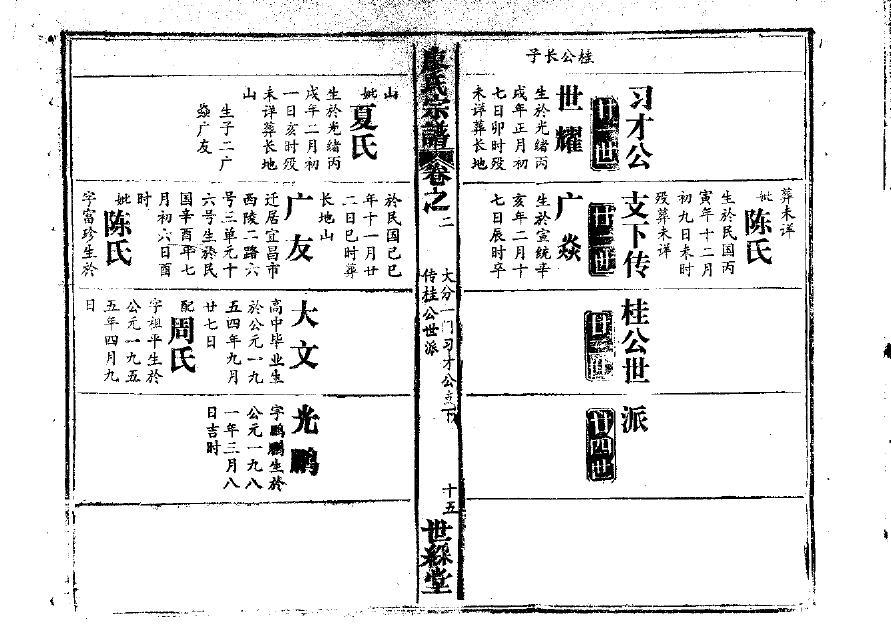 葬未详
妣陈氏
生於民国丙
寅年十二月
初九日未时
殁葬未详
习才公支下传桂公世派
廿四世
桂公长子
世耀
生於光绪丙
戌年正月初
七日卯时殁
未详葬长地
广焱
生於宣统辛
亥年二月十
七日辰时卒
廖氏宗譜 卷之二
大分一门习才公立下
传桂公世派
十五
世綵堂
山
妣夏氏
生於光绪丙
戌年二月初
一日亥时殁
未详葬长地
山
生子二广
焱广友
於民国己巳
年十一月廿
二日巳时葬
长地山
广友
迁居宜昌市
西陵二路六
号三单元十
六号生於民
国辛酉年七
月初六日酉
时
妣陈氏
字富珍生於
大文
高中毕业生
於公元一九
五四年九月
廿七日
配周氏
字祖平生於
公元一九五
五年四月九
日
光鹏
字鹏鹏生於
公元一九八
一年三月八
日吉时